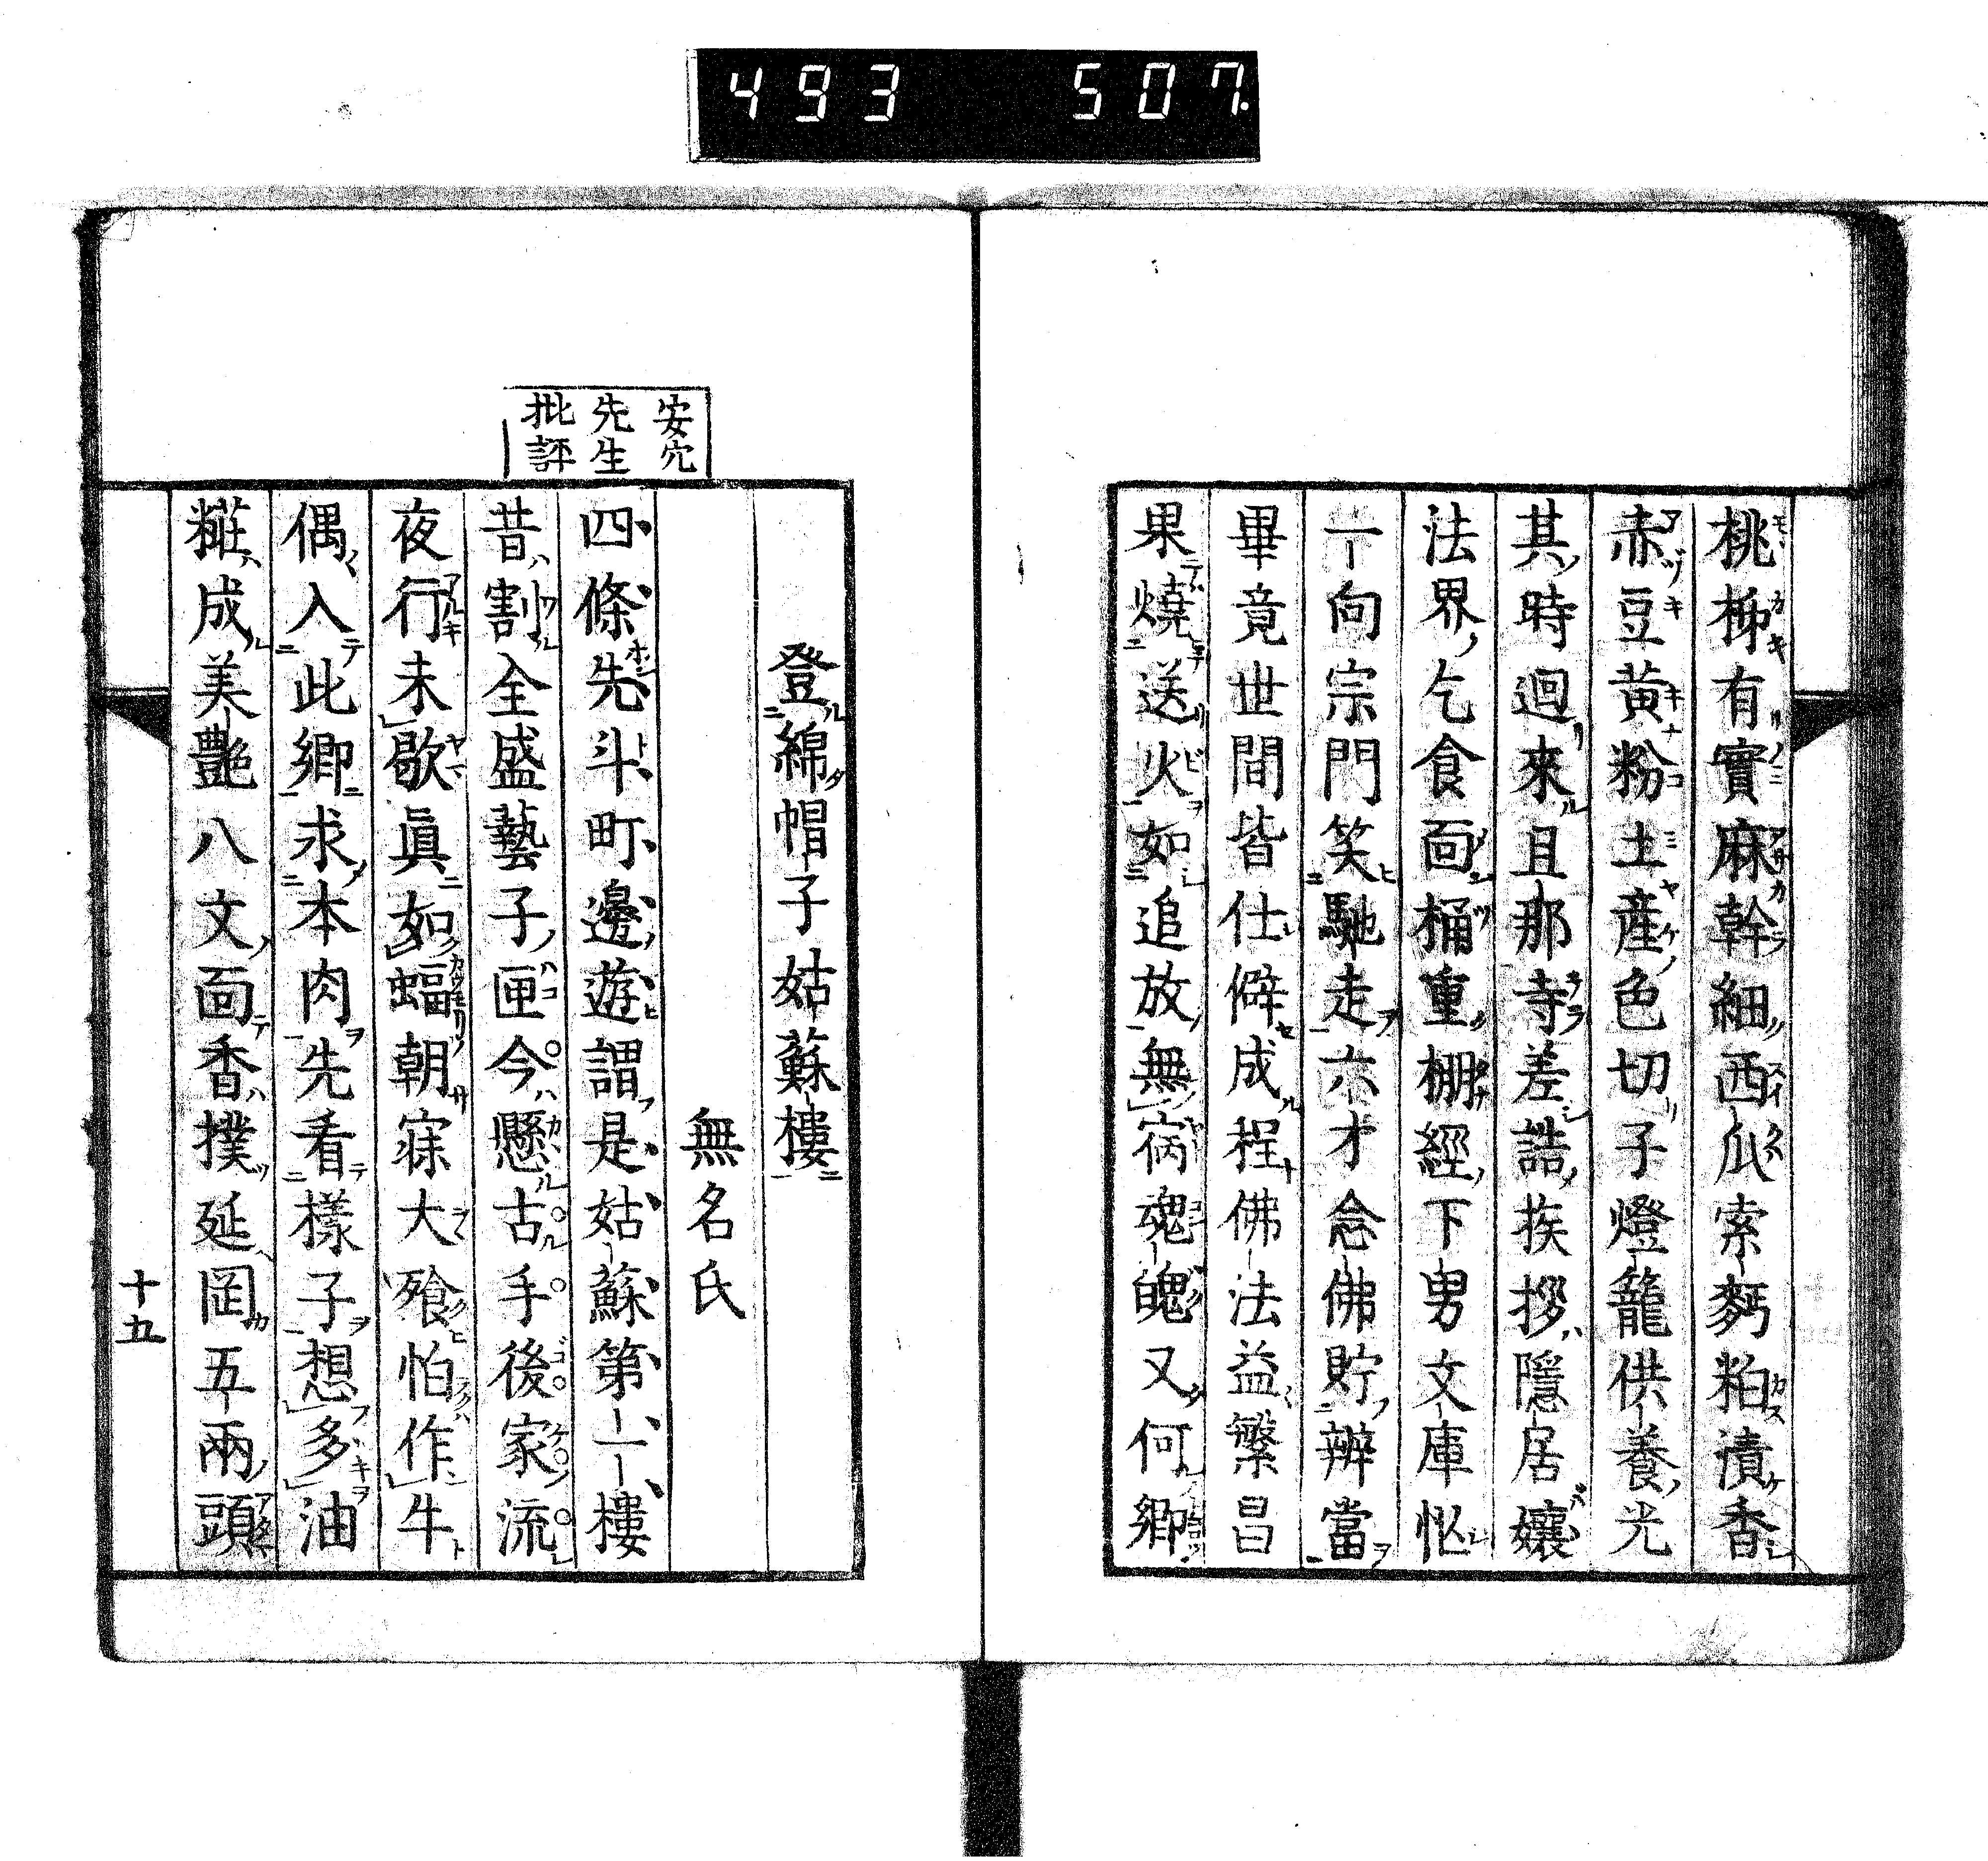 493 507.
桃柹有實麻幹細西瓜索麪粕漬香
赤豆黄粉土産色切子燈籠供養光
其時迴來且那寺差誥挨拶隱居孃
法界乞食面桶重棚經下男文庫怭
一向宗門笑馳走六才念佛貯辨當
畢竟世間皆仕癖成程佛法益繁昌
果燒送火如追放無病魂魄又何鄉
安穴
先生
批評
登綿帽子姑蘇樓
無名氏
四條先斗町邊遊謂是姑蘇第一樓
昔割全盛藝子匣今懸古手後家流
夜行未歇眞如蝙朝寐大飱怕作牛
偶入此鄉求本肉先看樣子想多油
糚成美艷八文面香撲延罔五兩頭
十五